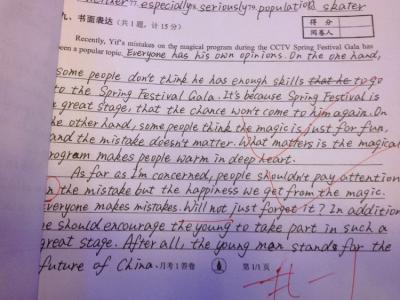 especially seriously population skater
九、书面表达(共1题,计15分)
得 分
阅卷人
Recently, Yif's mistakes on the magical program during the CCTV Spring Festival Gala has
been a popular topic. Everyone has his own opinions. On the one hand,
some people don't think he has enough skills that he to go
to the Spring Festival Gala. It's because Spring Festival is
a great stage, that the chance won't come to him again. On
the other hand, some people think the magic is just for fun,
and the mistake doesn't matter. What matters is the magical
program makes people warm in deep heart.
As far as I'm concerned, people shouldn't pay attention
the mistake but the happiness we get from the magic.
Everyone makes mistakes. Will not just forget it? In addition
we should encourage the young to take part in such a
great stage. After all, the young man stands for the
future of China.
月考1答卷 第1/1页